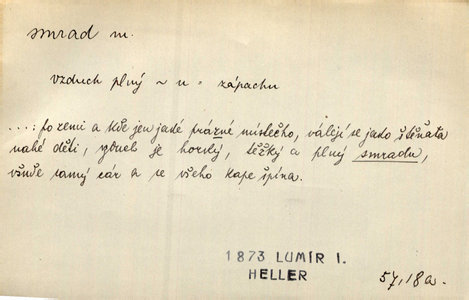 smrad m.
vzduch plný ~ u = zápachu
....: po zemi a kde jen jaké prázné místečko, válejí se jako štěňata
nahé děti, vzduch je horký, těžký a plný smradu,
všude samý cár a ze všeho kape špína.
1873 LUMÍR I.
HELLER
57, 18a.